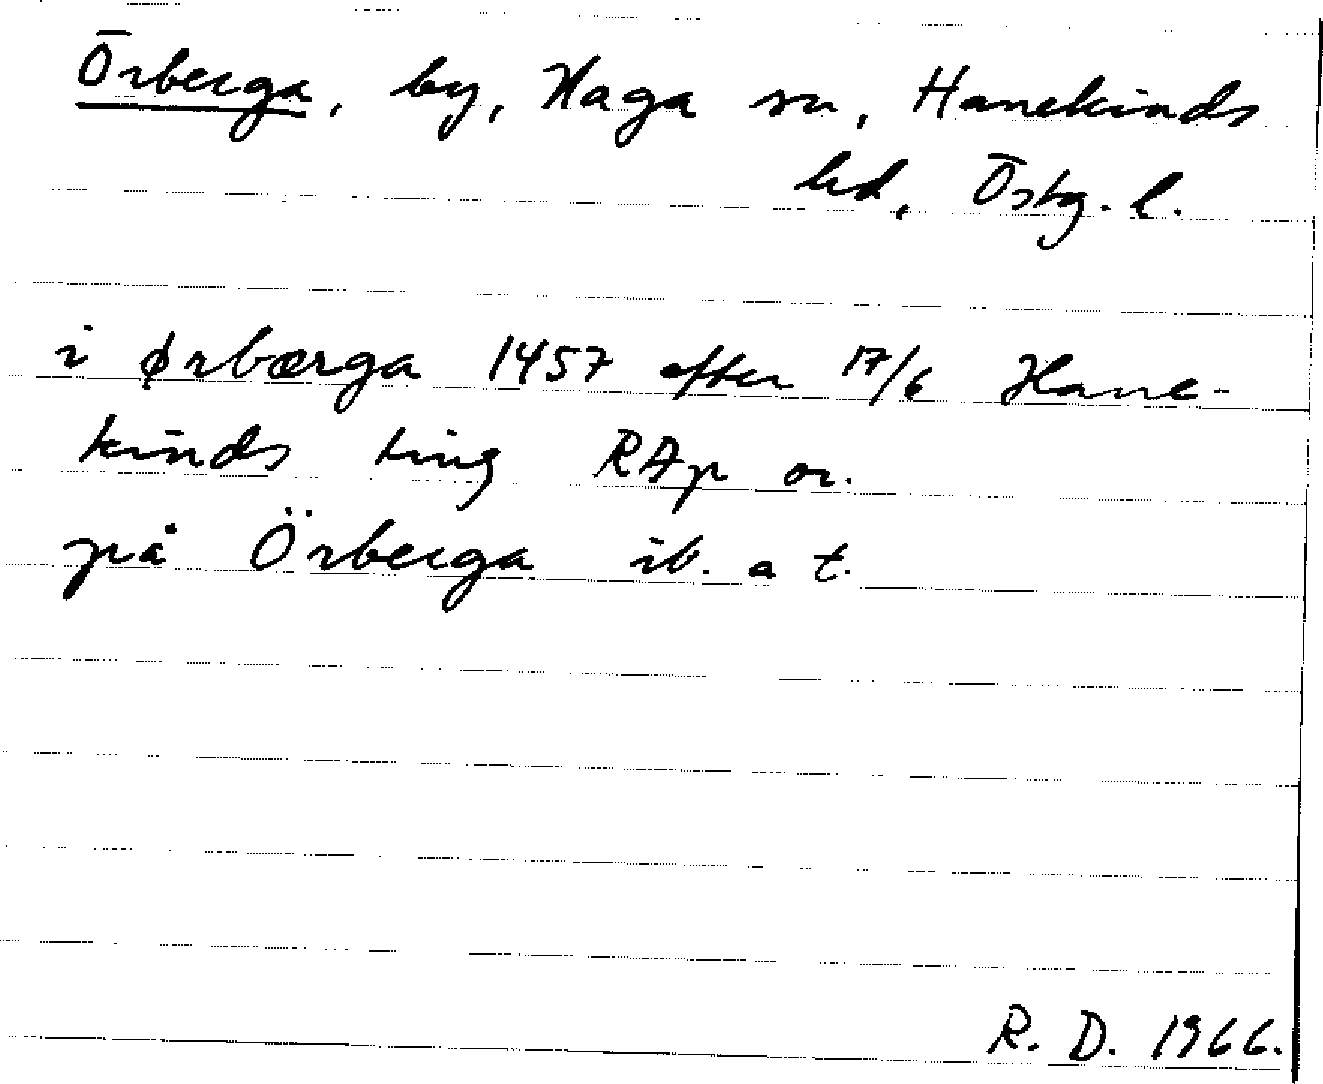 Örberga, by, Kaga sn, Hanekinds
hd, Östg. l.
i ørbærga 1457 efter 17/6 Hane-
kinds ting RAp or.
på Örberga ib. a t.
R. D. 1966.